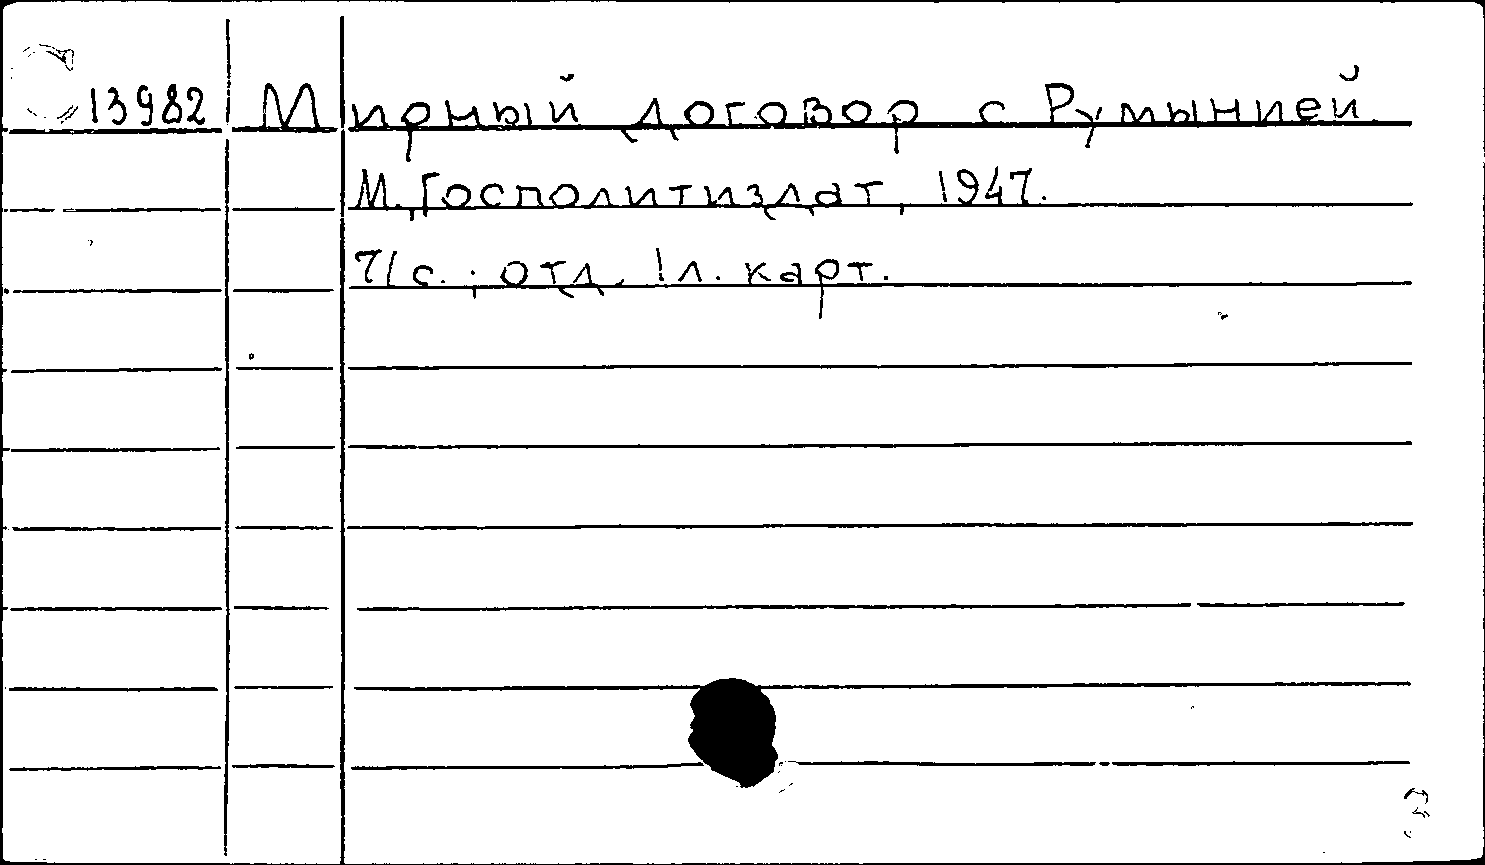 13982 Мирный договор с Румынией.
М., Госполитиздат, 1947.
71 с.; отд. 1 л. карт.